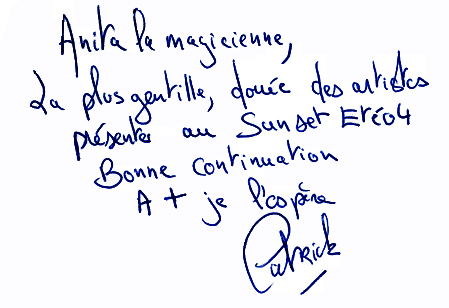 Anita la magicienne,
La plus gentille, douée des artistes
présentes au Sunset Eté04
Bonne continuation
A + je l'espère
Patrick